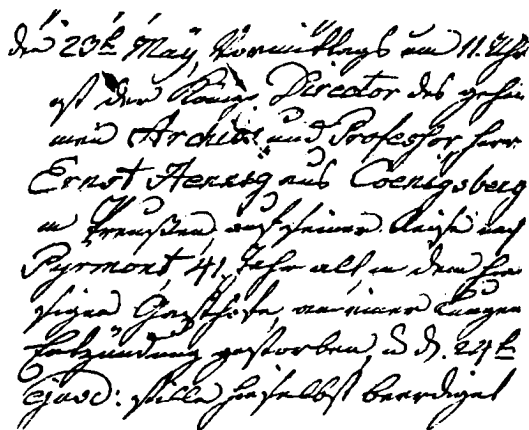 den 23t May, Vormittags um 11. Uhr
ist der Königl. Director des gehei
men Archivs und Professor, Herr
Ernst Hennig aus Coenigsberg
in Preußen, auf seiner Reise nach
Pyrmont, 41 Jahr alt in dem hie
sigen Gasthofe, an einer Lungen
Entzündung gestorben, u. d. 24t
ejusd: stille hieselbst beerdiget